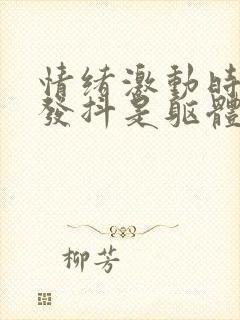 情绪激動時
發抖是軀體
柳芳